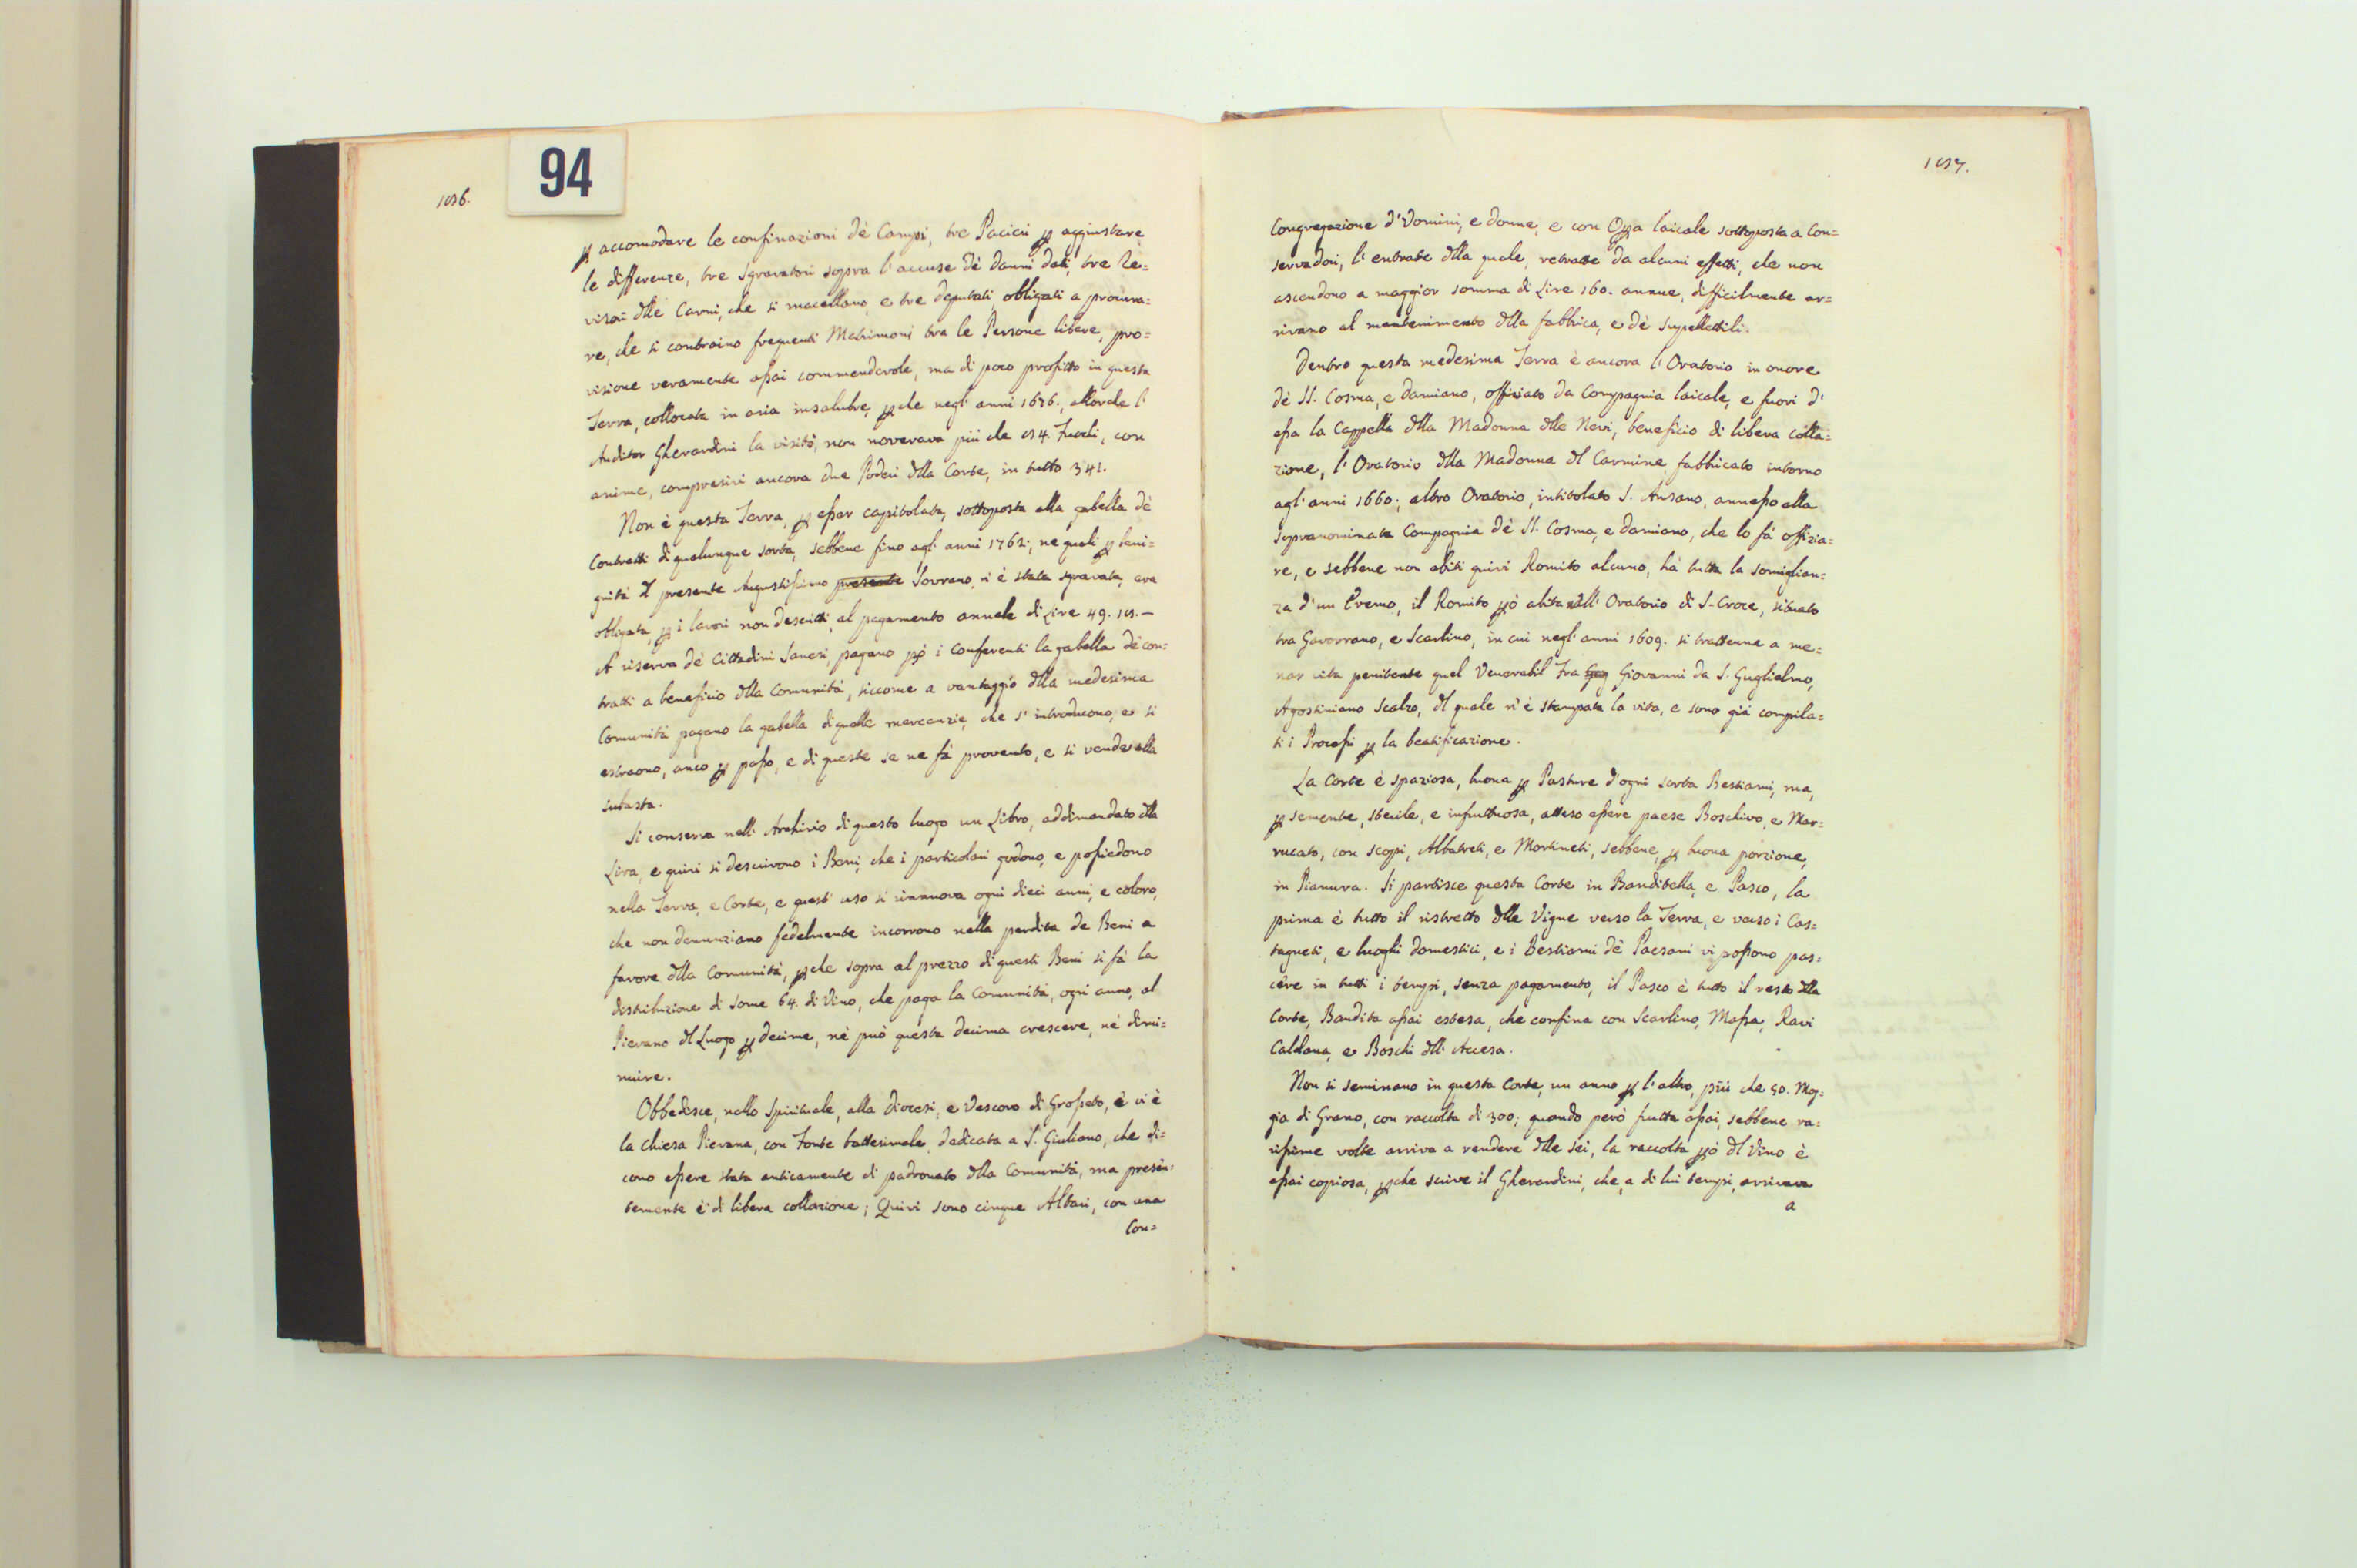 94
156.
p accomodare le confinazioni dè Campi, tre Pacieri p aggiustare
le differenze, tre sgravatori sopra l'accuse dè danni dati, tre Re=
visori dlle Carni, che si macellano, e tre deputati, obligati a procura=
re, che si contraino frequenti Matrimonj tra le Persone libere, pro=
visione veramente assai commendevole, ma di poco profitto in questa
Terra, collocata in aria insalubre, pche negl'anni 1676., allorche l'
Auditor Gherardini la visitò, non noverava più che 54. Fuochi, con
anime, compresivi ancora due Poderi dlla Corte, in tutto 341.
Non è questa Terra, p esser capitolata, sottoposta alla gabella dè
Contratti di qualunque sorta, sebbene fino agl'anni 1762., ne quali p beni=
gnità dl presente Augustissimo presente Sovrano, n'è stata sgravata, era
obligata, p i lavori non descritti, al pagamento annale di Lire 49. 15.—
A riserva dè Cittadini Sanesi, pagano pò i Conferenti la gabella dè con=
tratti a beneficio dlla Comunità, siccome a vantaggio dlla medesima
Comunità pagano la gabella di quelle mercanzie, che s'introducono, e si
estraono, anco p passo, e di queste se ne fà provento, e si vende alla
subasta.
Si conserva nell'Archivio di questo luogo un Libro, addimandato dlla
Lira, e quivi si descrivono i Beni, che i particolari godono, e possiedono
nella Terra, e Corte, e quest'uso si rinnuova ogni dieci anni, e coloro,
che non denunziano fedelmente incorrono nella perdita de Beni a
favore dlla Comunità, pche sopra al prezzo di questi Beni si fà la
distribuzione di some 64. di Vino, che paga la Comunità, ogni anno, al
Pievano dl Luogo p decime, nè può questa decima crescere, nè dimi=
nuire.
Obbedisce, nello Spirituale, alla Diocesi, e Vescovo di Grosseto, e vi è
la Chiesa Pievana, con Fonte battesimale, dedicata a S. Giuliano, che di=
cono essere stata anticamente di padronato dlla Comunità, ma presen=
temente è di libera collazione; Quivi sono cinque Altari, con una
Con=
157.
Congregazione d'Uomini, e donne, e con Opa laicale sottoposta a Con=
servadori, l'entrate dlla quale, retratte da alcuni effetti, che non
ascendono a maggior somma di Lire 160. annue, difficilmente ar=
rivano al mantenimento dlla fabbrica, e dè supellettili.
Dentro questa medesima Terra è ancora l'Oratorio in onore
dè SS. Cosma, e Damiano, offiziato da Compagnia laicale, e fuori d'
essa la Cappella dlla Madonna dlle Nevi, beneficio di libera colla=
zione, l'Oratorio dlla Madonna dl Carmine, fabbricato intorno
agl'anni 1660; altro Oratorio, intitolato S. Ansano, annesso alla
sopranominata Compagnia dè SS. Cosma, e Damiano, che lo fà offizia=
re, e sebbene non abiti quivi Romito alcuno, hà tutta la somiglian=
za d'un Eremo, il Romito pò abita nell'Oratorio di S. Croce, situato
tra Gavorrano, e Scarlino, in cui negl'anni 1609. si trattenne a me=
nar vita penitente quel Venerabil Fra Giovanni da S. Guglielmo,
Agostiniano Scalzo, dl quale n'è stampata la vita, e sono già compila=
ti i Processi p la beatificazione.
La Corte è spaziosa, buona p Pasture d'ogni sorta Bestiami, ma,
p semente, sterile, e infruttuosa, atteso essere paese Boschivo, e Mar=
rucato, con scopi, Albatreti, e Mortineti, sebbene, p buona porzione,
in Pianura. Si partisce questa Corte in Banditella, e Pasco, la
prima è tutto il ristretto dlle Vigne verso la Terra, e verso i Cas=
tagneti, e luoghi domestici, e i Bestiami dè Paesani vi possono pas=
cere in tutti i tempi, senza pagamento, il Pasco è tutto il resto dlla
Corte, Bandita assai estesa, che confina con Scarlino, Massa, Ravi
Caldana, e Boschi dll'Accesa.
Non si seminano in questa Corte, un anno p l'altro, più che 50. Mog=
gia di Grano, con raccolta di 300; quando però frutta assai, sebbene ra=
rissime volte arriva a rendere dlle sei, la raccolta pò dl Vino è
assai copiosa, pche scrive il Gherardini, che, a di lui tempi, arrivava
a